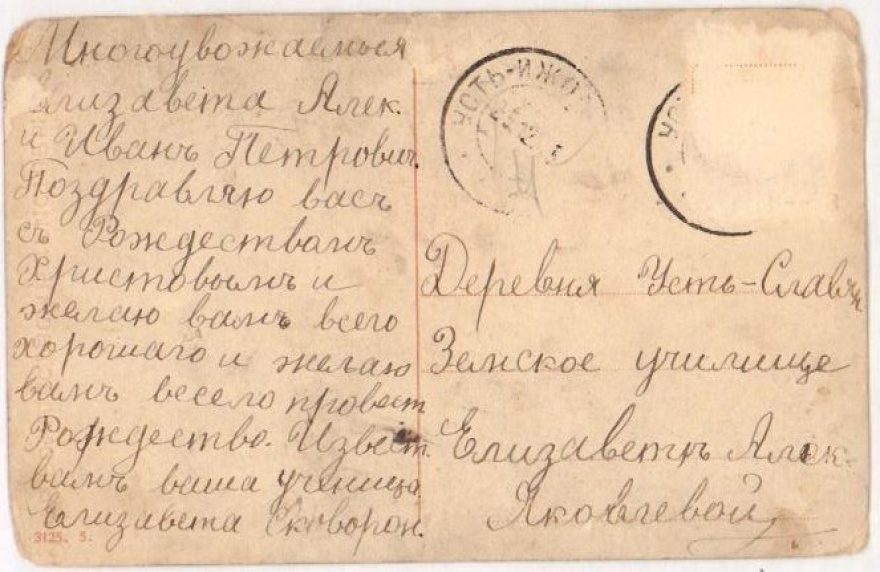 Многоувожаемыея
Елизавета Алек.
и Иванъ Петрович.
Поздравляю васъ
съ Рождествамъ
Христовымъ и
желаю вамъ всего
хорошаго и желаю
вамъ весело провест
Рождество. Извест.
вамъ ваша ученица
Елизавета Скворон.
3125. 5.
УСТЬ-ИЖО
12
Деревня Усть-Славян
Земское училище
Елизаветъ Алек.
Яковлевой